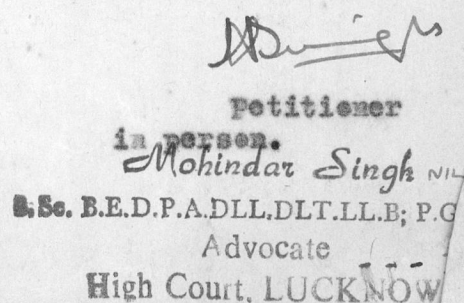 Petitioner
in person.
Mohindar Singh NIL
B.Sc. B.E.D.P.A.DLL.DLT.LL.B; P.G
Advocate
High Court, LUCKNOW